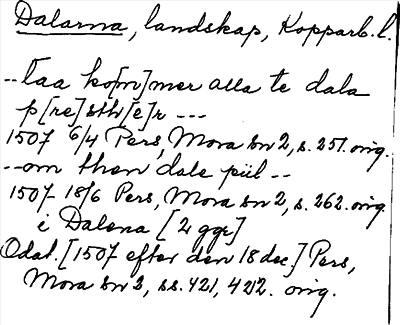 Dalarna, landskap, Kopparb.l.
--Taa ko[m]mer alla te dala
p[re]sth[e]r ---
1507 6/4 Pers, Mora sn 2, s. 251. orig.
--om then dale piil --
1507- 18/6 Pers, Mora sn 2, s. 262. orig.
i Dalena [2 ggr]
Odat. [1507 efter den 18 dec.] Pers,
Mora sn 2, ss. 421, 422. orig.